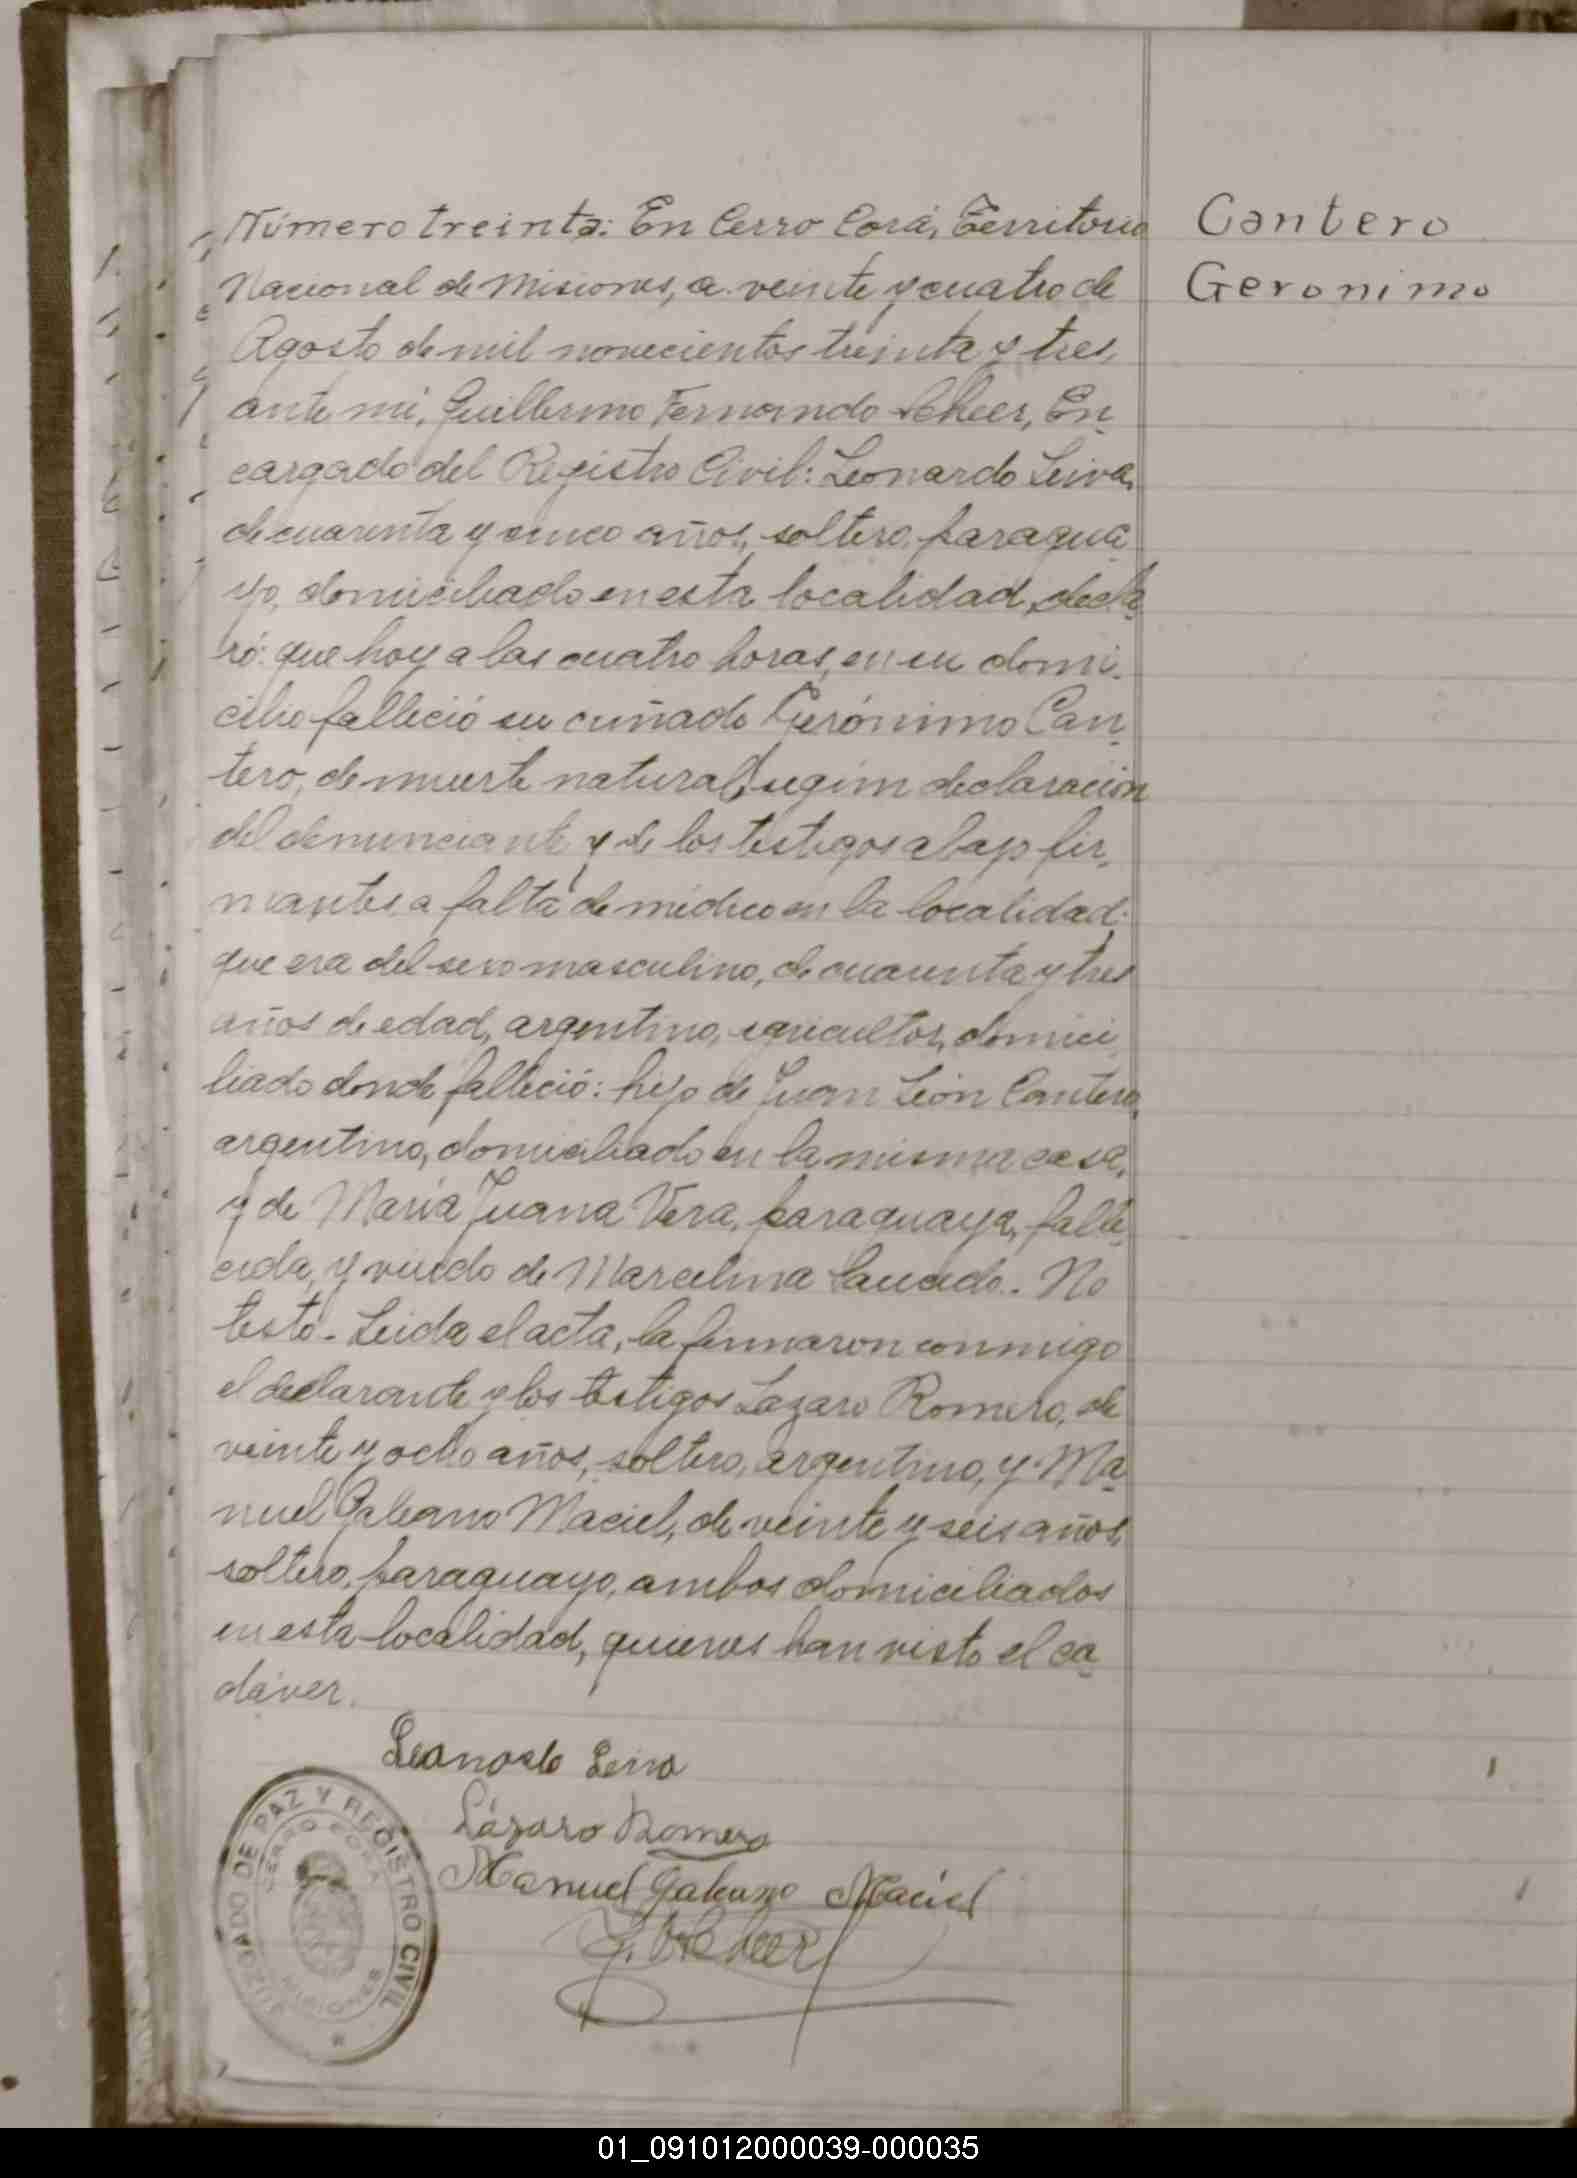 Número treinta: En Cerro Corá, Territorio
Nacional de Misiones, a veinte y cuatro de
Agosto de mil novecientos treinta y tres,
ante mi, Guillermo Fernando Scheer, En-
cargado del Registro Civil: Leonardo Leiva,
de cuarenta y cinco años, soltero, paragua-
yo, domiciliado en esta localidad, decla-
ró: que hoy a las cuatro horas, en su domi-
cilio falleció su cuñado Gerónimo Can-
tero, de muerte natural, según declaración
del denunciante y de los testigos abajo fir-
mantes a falta de médico en la localidad:
que era del sexo masculino, de cuarenta y tres
años de edad, argentino, agricultor, domici-
liado donde falleció: hijo de Juan León Cantero,
argentino, domiciliado en la misma casa,
y de María Juana Vera, paraguaya, falle-
cida, y viudo de Marcelina. No
testó. Leida el acta, la firmaron conmigo
el declarante y los testigos Lazaro Romero, de
veinte y ocho años, soltero, argentino, y Ma-
nuel Galeano Maciel, de veinte y seis años,
soltero, paraguayo, ambos domiciliados
en esta localidad, quienes han visto el ca-
dáver.
Cantero
Geronimo
Leonardo Leiva
Lázaro Romero
Manuel Galeano Maciel
G. F. Scheer
JUZGADO DE PAZ Y REGISTRO CIVIL
CERRO CORA
MISIONES
01_091012000039-000035